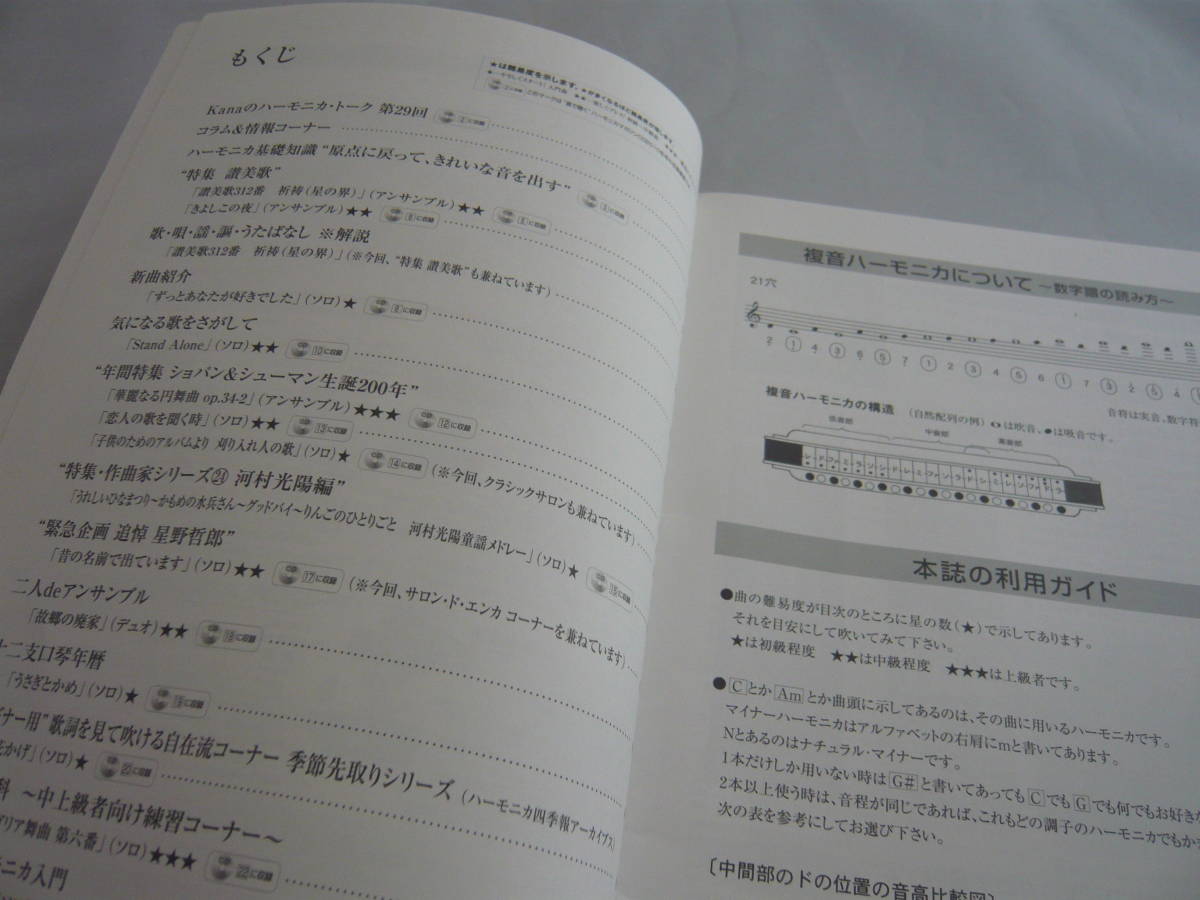 もくじ
★は難易度を示します。
Kanaのハーモニカ・トーク 第29回
コラム&情報コーナー
ハーモニカ基礎知識 "原点に戻って、きれいな音を出す"
"特集 讃美歌"
「讃美歌312番 祈祷(星の界)」(アンサンブル)★★
「きよしこの夜」(アンサンブル)★★
歌・唄・謡・謳・うたばなし ※解説
「讃美歌312番 祈祷(星の界)」(※今回、"特集 讃美歌"も兼ねています)
新曲紹介
「ずっとあなたが好きでした」(ソロ)★
気になる歌をさがして
「Stand Alone」(ソロ)★★ CD 10に収録
"年間特集 ショパン&シューマン生誕200年"
「華麗なる円舞曲 op.34-2」(アンサンブル)★★★ CD 12に収録
「恋人の歌を聞く時」(ソロ)★★ CD 13に収録
「子供のためのアルバムより 刈り入れ人の歌」(ソロ)★ CD 14に収録 (※今回、クラシックサロンも兼ねています)
"特集・作曲家シリーズ㉔ 河村光陽編"
「うれしいひなまつり~かもめの水兵さん~グッドバイ~りんごのひとりごと 河村光陽童謡メドレー」(ソロ)★
"緊急企画 追悼 星野哲郎"
「昔の名前で出ています」(ソロ)★★ CD 17に収録 (※今回、サロン・ド・エンカ コーナーを兼ねています)
二人deアンサンブル
「故郷の廃家」(デュオ)★★ CD 18に収録
十二支口琴年暦
「うさぎとかめ」(ソロ)★ CD 19に収録
ナー用"歌詞を見て吹ける自在流コーナー 季節先取りシリーズ (ハーモニカ四季報アーカイブス)
かげ」(ソロ)★
科 ~中上級者向け練習コーナー~
ガリア舞曲 第六番」(ソロ)★★★ CD 22に収録
モニカ入門
複音ハーモニカについて ~数字譜の読み方~
21穴
2 ① 4 ③ 6 ⑤ 7 ① 2 ③ 4 ⑤ 6 ① 7 ③ 2 ⑤ 4
音符は実音、数字符
複音ハーモニカの構造 (自然配列の例) ○は吹音、●は吸音です。
低音部 中音部 高音部
本誌の利用ガイド
●曲の難易度が目次のところに星の数(★)で示してあります。
それを目安にして吹いてみて下さい。
★は初級程度 ★★は中級程度 ★★★は上級者です。
●CとかAmとか曲頭に示してあるのは、その曲に用いるハーモニカです。
マイナーハーモニカはアルファベットの右肩にmと書いてあります。
Nとあるのはナチュラル・マイナーです。
1本だけしか用いない時はG#と書いてあってもCでもGでも何でもお好きな
2本以上使う時は、音程が同じであれば、これもどの調子のハーモニカでもかま
次の表を参考にしてお選び下さい。
〔中間部のドの位置の音高比較図〕